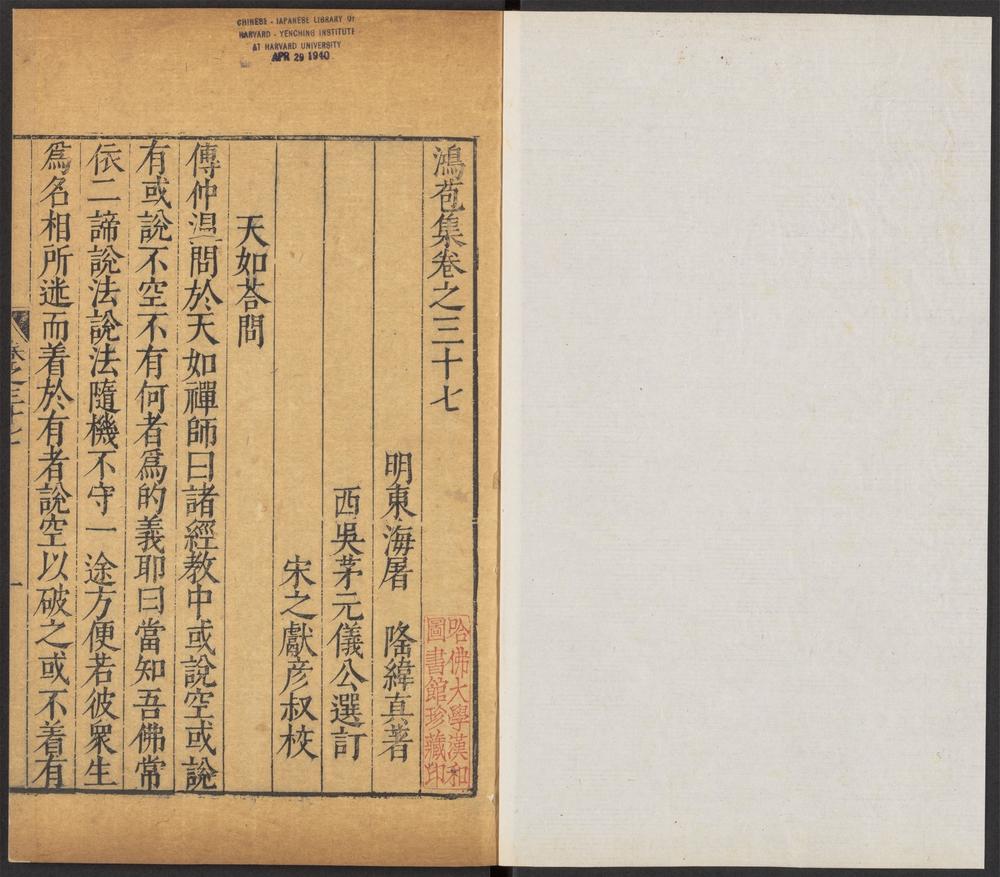 CHINESE - JAPANESE LIBRARY OF
HARVARD - YENCHING INSTITUTE
AT HARVARD UNIVERSITY
APR 29 1940
鴻苞集卷之三十七
明東海屠　隆緯真著
西吳茅元儀公選訂
宋之獻彥叔校
天如荅問
傅仲温問於天如禪師曰諸經教中或說空或說
有或說不空不有何者爲的義耶曰當知吾佛常
依二諦說法說法隨機不守一途方便若彼衆生
爲名相所迷而着於有者說空以破之或不着有
卷之三十七
一
哈佛大學漢和
圖書館珍藏印